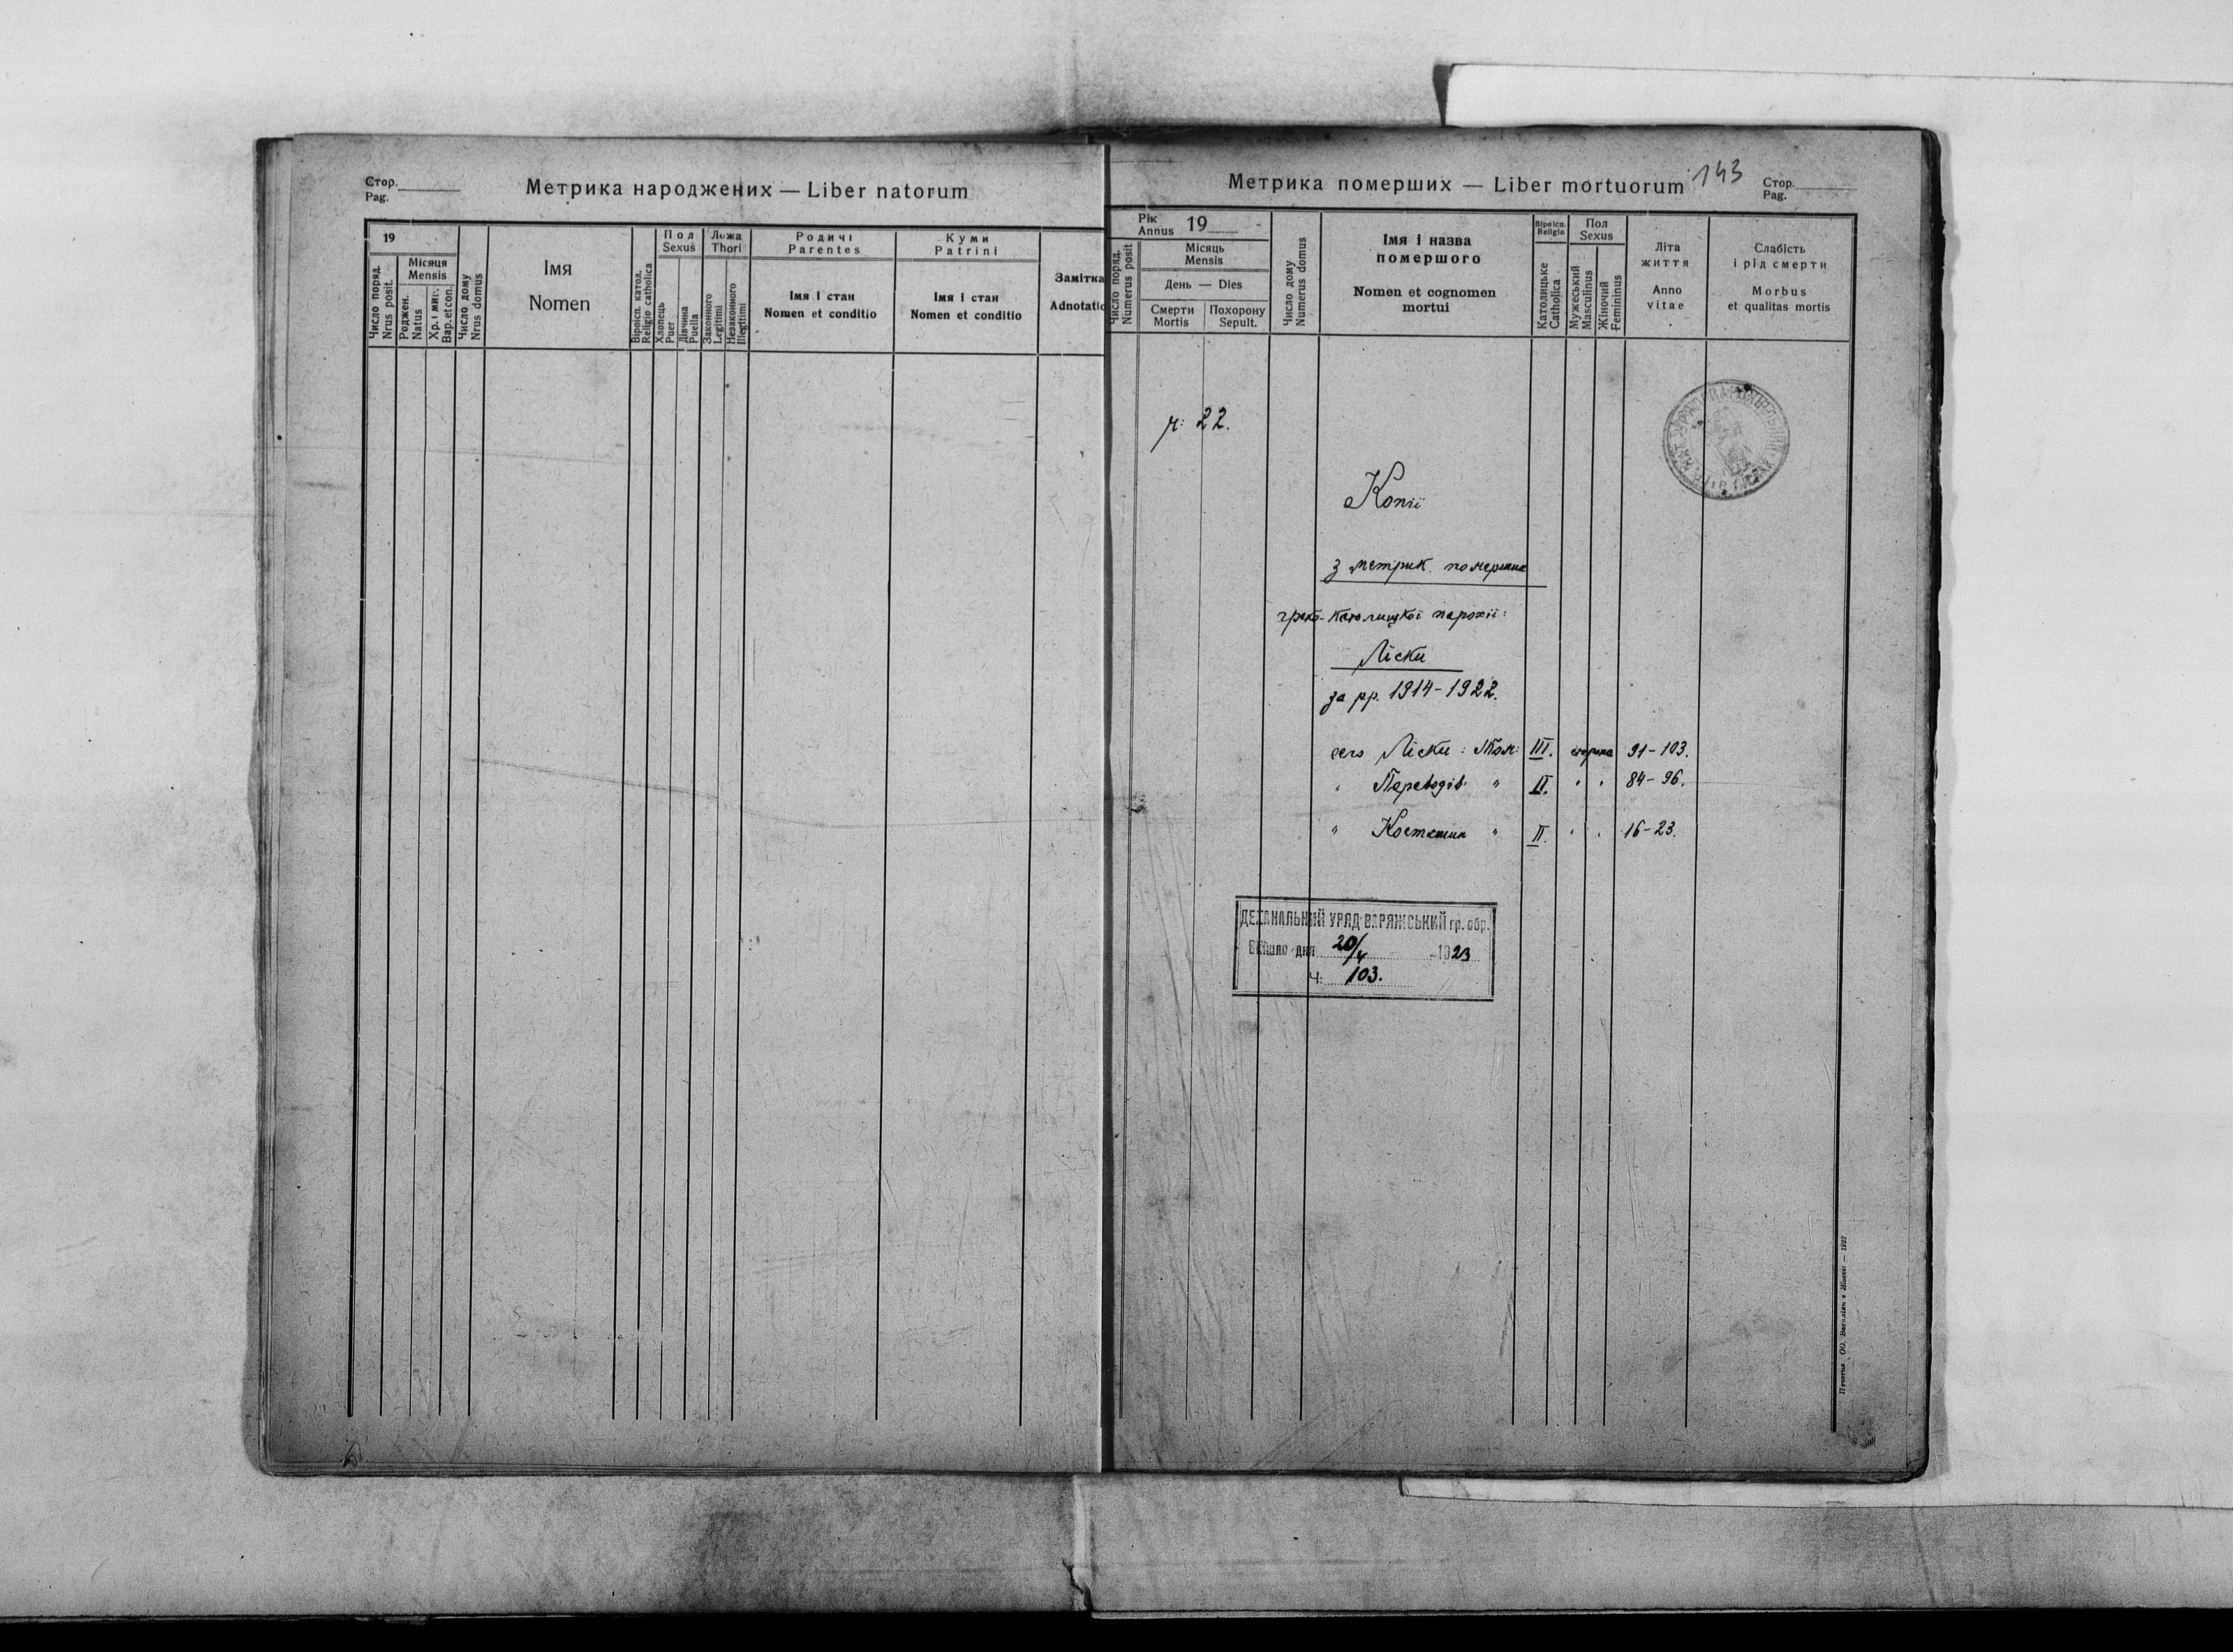 Стор.
Pag.
Метрика народжених — Liber natorum
19
Число поряд.
Nrus posit.
Місяця
Mensis
Роджен.
Natus
Хр. і мир.
Bap. et con.
Число дому
Nrus domus
Імя
Nomen
Віроісп. катол.
Religio catholica
Пол
Sexus
Хлопець
Puer
Дівчина
Puella
Ложа
Thori
Законного
Legitimi
Незаконного
Illegitimi
Родичі
Parentes
Імя і стан
Nomen et conditio
Куми
Patrini
Імя і стан
Nomen et conditio
Замітка
Adnotatio
Метрика померших — Liber mortuorum
143
Стор.
Pag.
Рік
Annus
19
Число поряд.
Numerus posit
Місяць
Mensis
День — Dies
Смерти
Mortis
Похорону
Sepult.
Число дому
Numerus domus
Імя і назва
помершого
Nomen et cognomen
mortui
Віроісп.
Religio
Католицьке
Catholica
Пол
Sexus
Мужеський
Masculinus
Жіночий
Femininus
Літа
життя
Anno
vitae
Слабість
і рід смерти
Morbus
et qualitas mortis
ч: 22.
Копії
з метрик померших
греко-католицкої парохії:
Ліски
за рр. 1914-1922.
село Ліски: Том: III. сторона 91-103.
" Переводів " II. " " 84-96.
" Костяшин " II. " " 16-23.
ДЕКАНАЛЬНИЙ УРЯД ВАРЯЖСЬКИЙ гр. обр.
Війшло дня 20/4 1923
Ч: 103.
Печатня ОО. Василіян в Жовкві — 1922